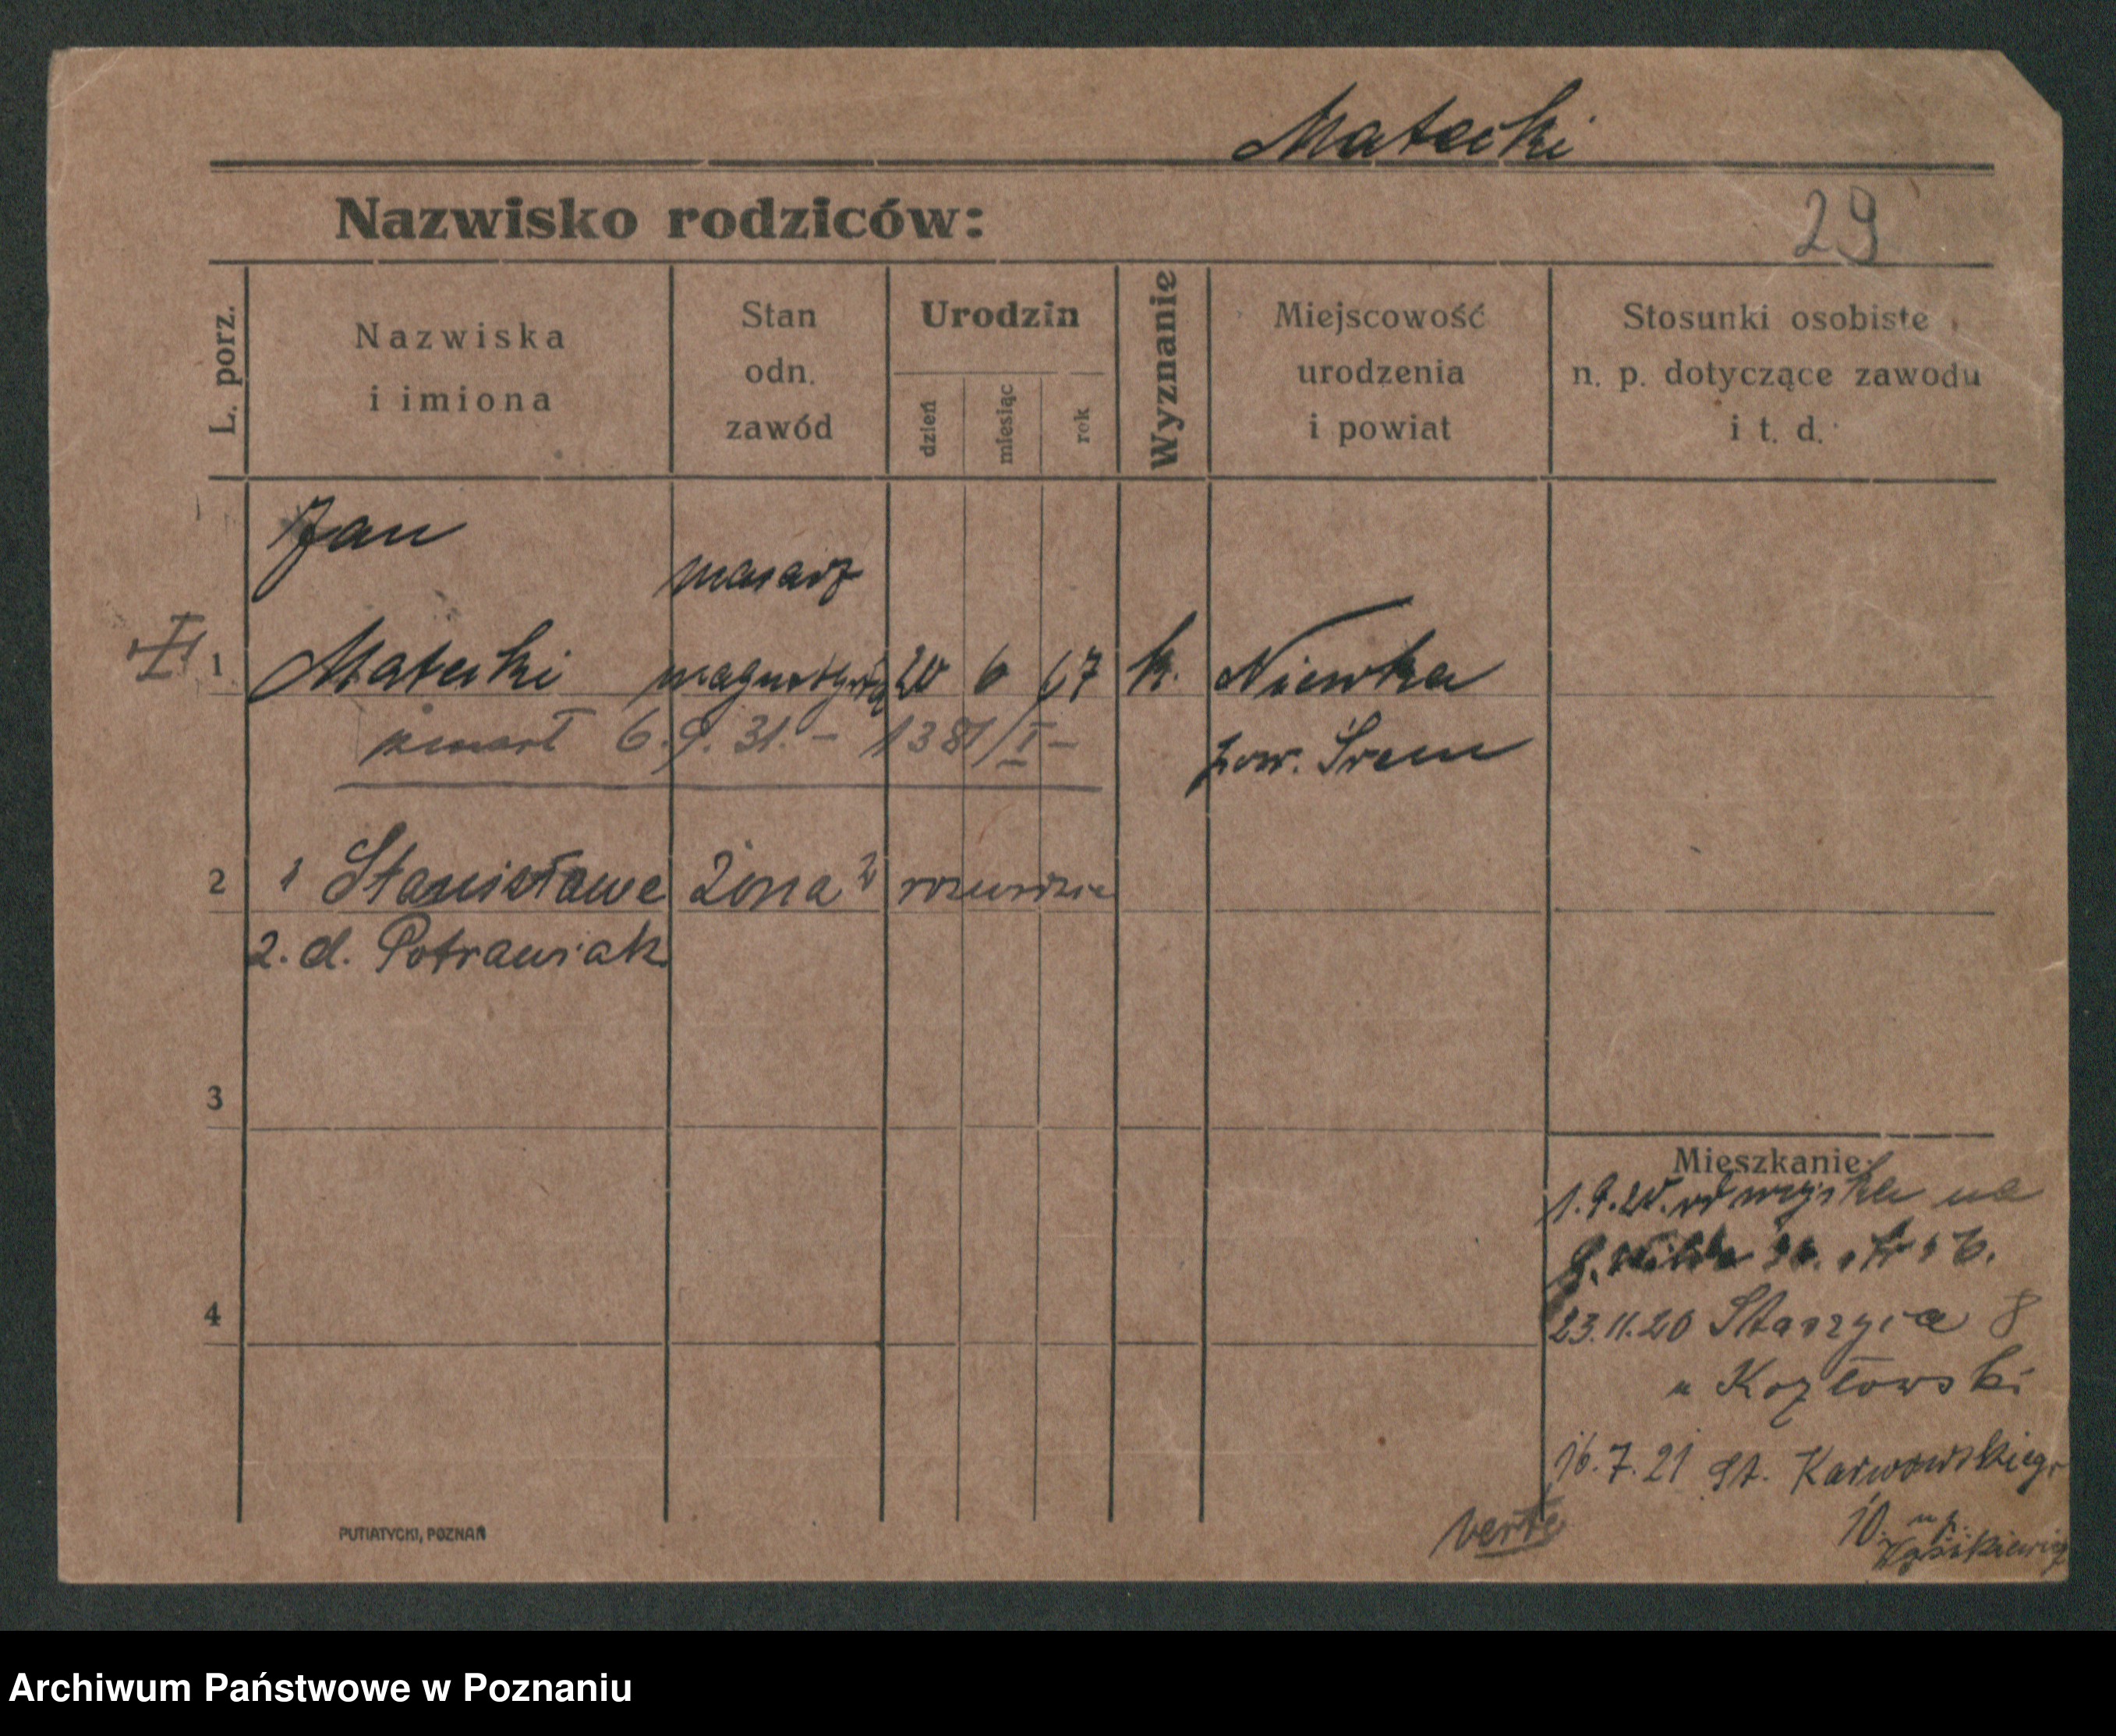 Matecki
Nazwisko rodziców:
29
L. porz.
Nazwiska
i imiona
Stan
odn.
zawód
Urodzin
dzień
miesiąc
rok
Wyznanie
Miejscowość
urodzenia
i powiat
Stosunki osobiste
n. p. dotyczące zawodu
i t. d.
Jan
masarz
1 Matecki 20 6 67 k. Niewka
zmarł 6.9.31. – 1381/I –
pow. Śrem
2 1 Stanisława żona 2 rozwodzie
2. d. Potrawiak
3
4
Mieszkanie:
1.9.20. wojska na
23.11.20 Staszyca 8
u Kozłowski
16.7.21 St. Karwowskiego
10
verte
PUTIATYCKI, POZNAŃ
Archiwum Państwowe w Poznaniu